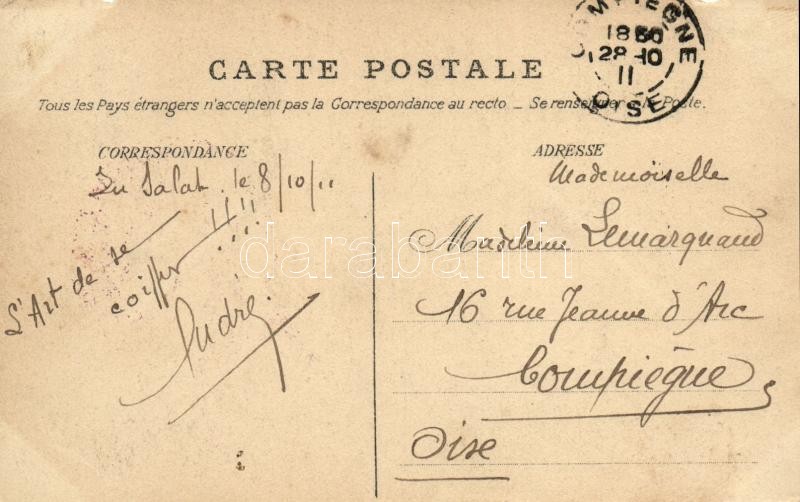 COMPIEGNE
18 30
28-10
11
OISE
CARTE POSTALE
Tous les Pays étrangers n'acceptent pas la Correspondance au recto _ Se renseigner à la Poste.
CORRESPONDANCE
In Salah. le 8/10/11
L'Art de se
coiffer !!!!
André.
ADRESSE
Mademoiselle
Madeleine Lemarquand
16 rue Jeanne d'Arc
Compiègne
Oise
darabanth